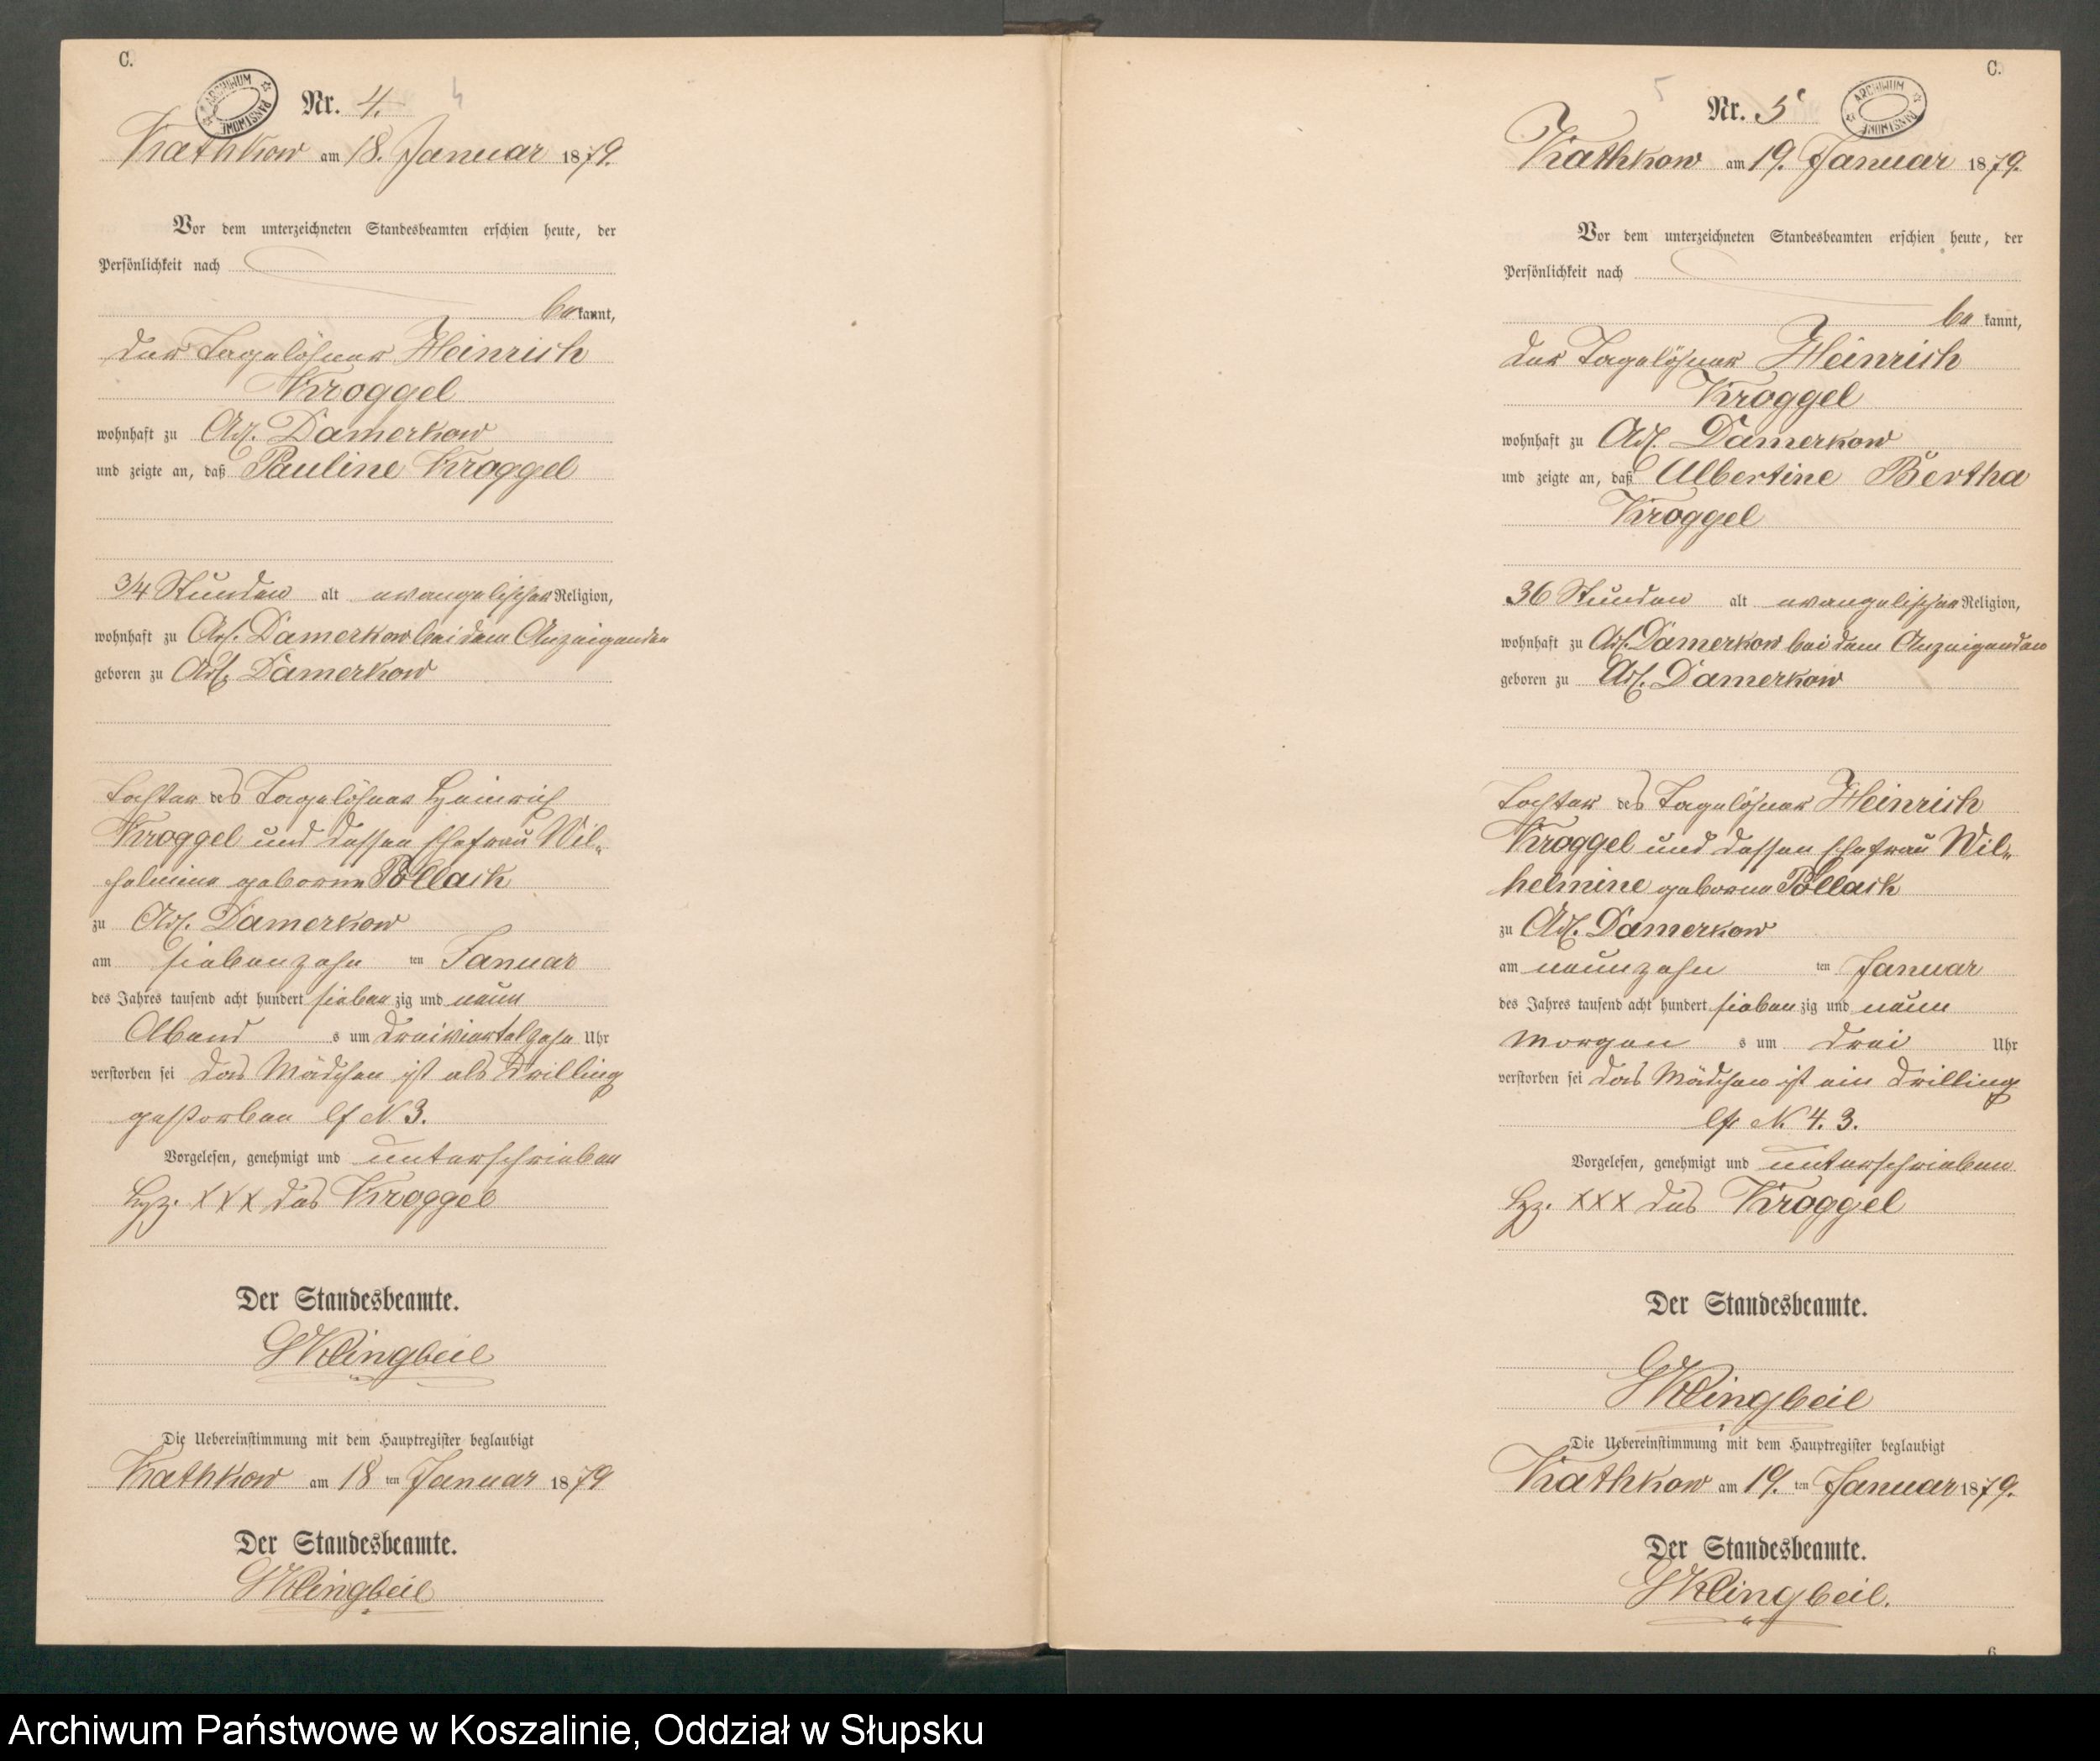 C.
ARCHIWUM PAŃSTWOWE
Nr. 4. 4
Kathkow am 18. Januar 1879.
Vor dem unterzeichneten Standesbeamten erschien heute, der
Persönlichkeit nach
bekannt,
der Tagelöhner Heinrich
Kroggel
wohnhaft zu Adl. Damerkow
und zeigte an, daß Pauline Kroggel
3/4 Stunden alt evangelischer Religion,
wohnhaft zu Adl. Damerkow bei dem Anzeigenden
geboren zu Adl. Damerkow
Tochter des Tagelöhner Heinrich
Kroggel und dessen Ehefrau Wil-
helmine geborne Pollack
zu Adl. Damerkow
am siebenzehn ten Januar
des Jahres tausend acht hundert sieben zig und neun
Abend s um dreiviertelzehn Uhr
verstorben sei das Mädchen ist als Drilling
gestorben cf N 3.
Vorgelesen, genehmigt und unterschrieben
Hz. XXX des Kroggel
Der Standesbeamte.
GKlingbeil
Die Uebereinstimmung mit dem Hauptregister beglaubigt
Kathkow am 18 ten Januar 1879
Der Standesbeamte.
GKlingbeil
C.
5 Nr. 5
ARCHIWUM PAŃSTWOWE
Kathkow am 19. Januar 1879.
Vor dem unterzeichneten Standesbeamten erschien heute, der
Persönlichkeit nach
be kannt,
der Tagelöhner Heinrich
Kroggel
wohnhaft zu Adl. Damerkow
und zeigte an, daß Albertine Bertha
Kroggel
36 Stunden alt evangelischer Religion,
wohnhaft zu Adl. Damerkow bei dem Anzeigenden
geboren zu Adl. Damerkow
Tochter des Tagelöhner Heinrich
Kroggel und dessen Ehefrau Wil-
helmine geborne Pollack
zu Adl. Damerkow
am neunzehn ten Januar
des Jahres tausend acht hundert sieben zig und neun
Morgen s um drei Uhr
verstorben sei das Mädchen ist ein Drilling
cfr N. 4. 3.
Vorgelesen, genehmigt und unterschrieben
Hz. XXX des Kroggel
Der Standesbeamte.
GKlingbeil
Die Uebereinstimmung mit dem Hauptregister beglaubigt
Kathkow am 19. ten Januar 1879.
Der Standesbeamte.
GKlingbeil.
6
Archiwum Państwowe w Koszalinie, Oddział w Słupsku